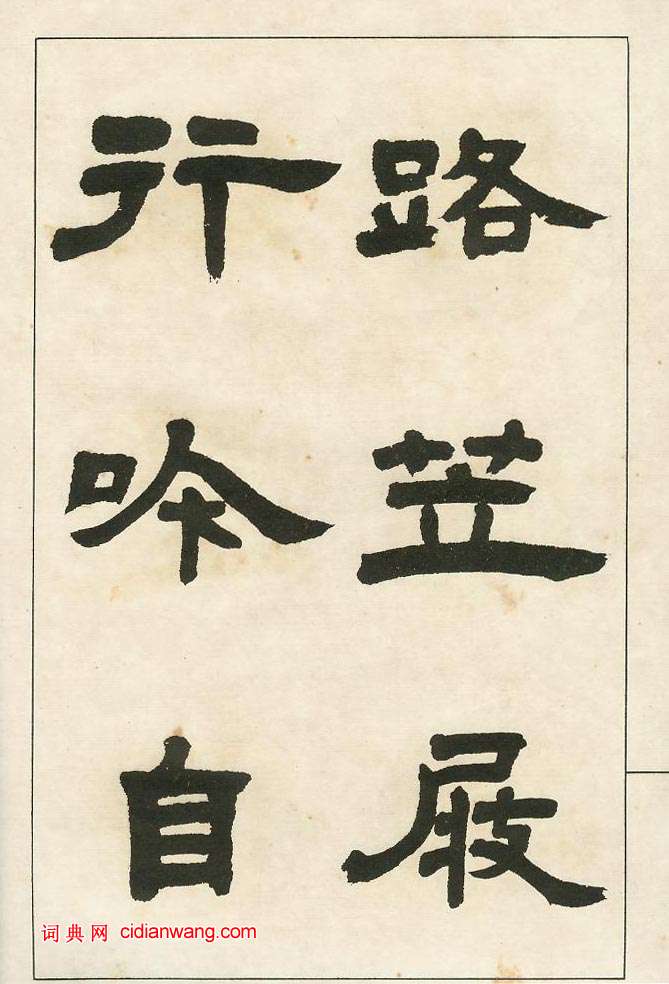 路笠屐
行吟自
词典网 cidianwang.com